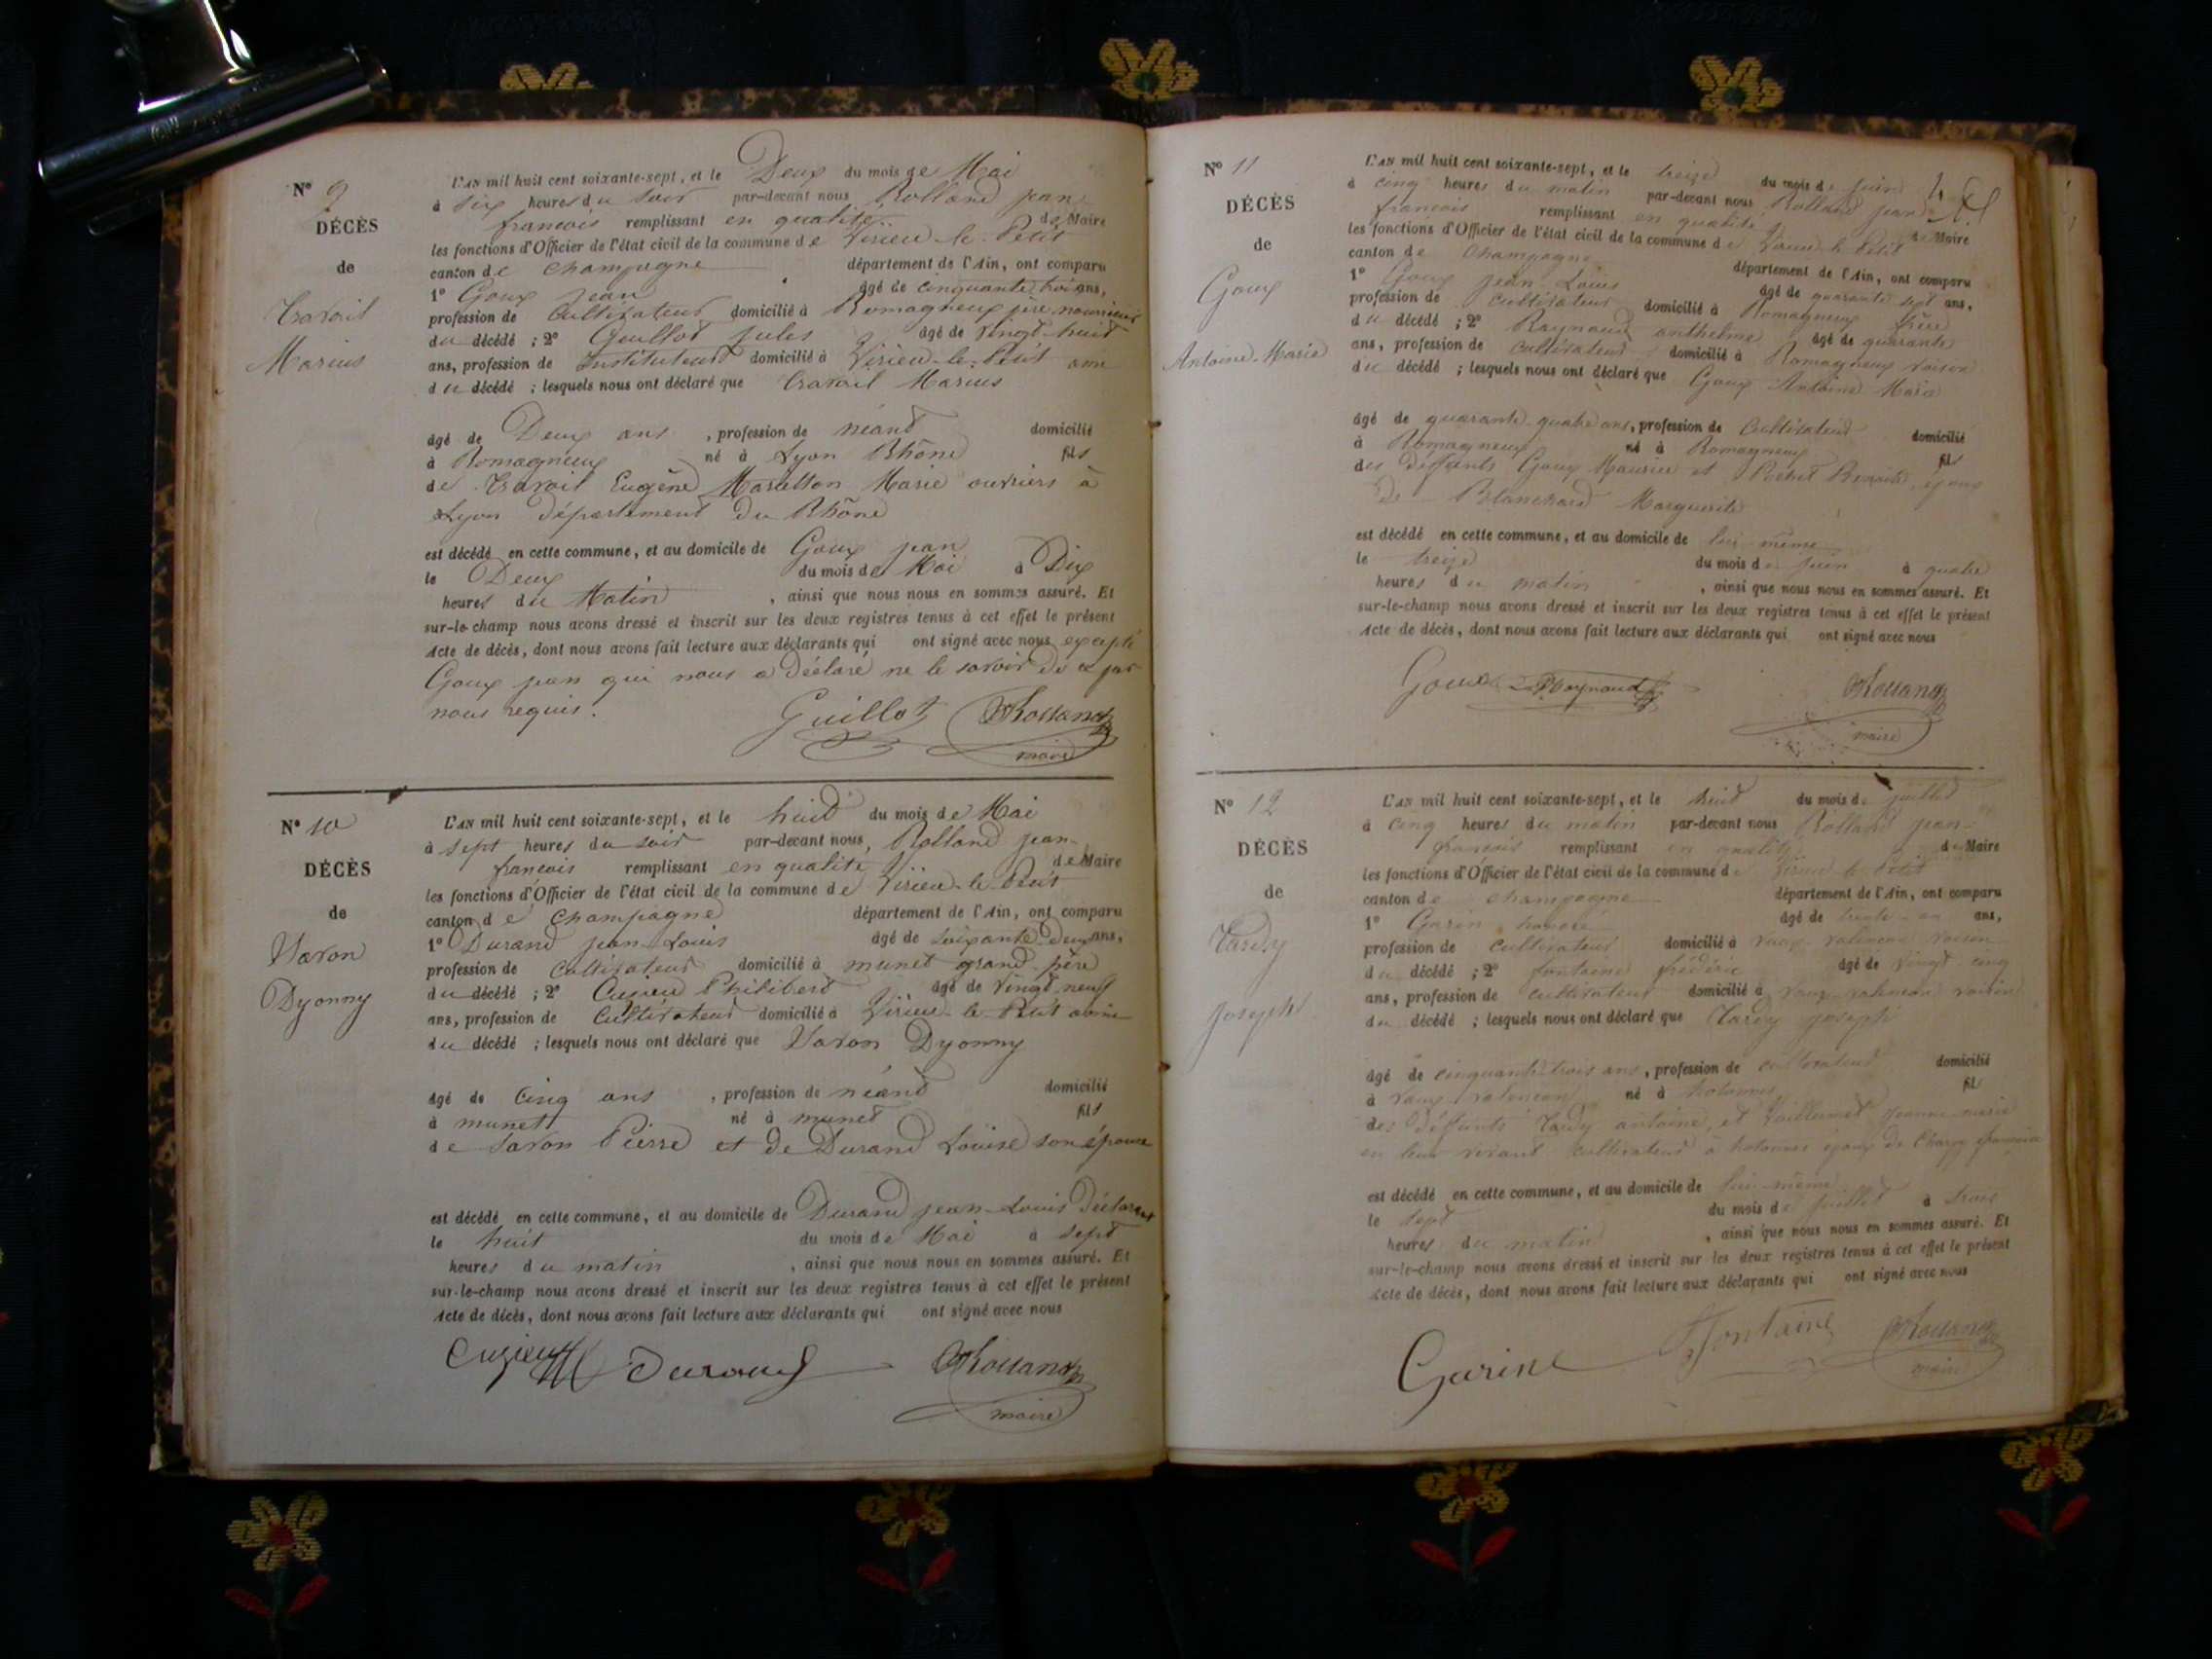 N° 9
DÉCÈS
de
Travail
Marius
L'AN mil huit cent soixante-sept, et le Deux du mois de Mai
à six heures du soir par-devant nous Rolland jean
francois remplissant en qualité de Maire
les fonctions d'Officier de l'état civil de la commune de Virieu-le-Petit
canton de champagne département de l'Ain, ont comparu
1° Goux Jean âgé de cinquante trois ans,
profession de Cultivateur domicilié à Romagneux père nourricier
du décédé ; 2° Guillot jules âgé de vingt-huit
ans, profession de Instituteur domicilié à Virieu-le-Petit ami
du décédé ; lesquels nous ont déclaré que travail Marius
âgé de Deux ans , profession de néant domicilié
à Romagneux né à Lyon Rhône fils
de Travail Eugène Marie ouvriers à
Lyon département du Rhône
est décédé en cette commune, et au domicile de Goux jean
le Deux du mois de Mai à Dix
heures du Matin , ainsi que nous nous en sommes assuré. Et
sur-le-champ nous avons dressé et inscrit sur les deux registres tenus à cet effet le présent
Acte de décès, dont nous avons fait lecture aux déclarants qui ont signé avec nous excepté
Goux jean qui nous a déclaré ne le savoir de ce par
nous requis.
Guillot Rolland
maire
N° 10
DÉCÈS
de
Savon
Dyonny
L'AN mil huit cent soixante-sept, et le huit du mois de Mai
à sept heures du soir par-devant nous, Rolland jean-
francois remplissant en qualité de Maire
les fonctions d'Officier de l'état civil de la commune de Virieu-le-Petit
canton de champagne département de l'Ain, ont comparu
1° Durand jean-Louis âgé de soixante-deux ans,
profession de Cultivateur domicilié à munet grand-père
du décédé ; 2° Cuzieu Philibert âgé de vingt-neuf
ans, profession de Cultivateur domicilié à Virieu-le-Petit
du décédé ; lesquels nous ont déclaré que Savon Dyonny
âgé de Cinq ans , profession de néant domicilié
à munet né à munet fils
de Savon Pierre et de Durand Louise son épouse
est décédé en cette commune, et au domicile de Durand jean-Louis déclarant
le huit du mois de Mai à sept
heures du matin , ainsi que nous nous en sommes assuré. Et
sur-le-champ nous avons dressé et inscrit sur les deux registres tenus à cet effet le présent
Acte de décès, dont nous avons fait lecture aux déclarants qui ont signé avec nous
Cuzieu Durand Rolland
maire
N° 11
DÉCÈS
de
Goux
Antoine-Marie
L'AN mil huit cent soixante-sept, et le treize du mois de juin
à cinq heures du matin par-devant nous Rolland jean
francois remplissant en qualité de Maire
les fonctions d'Officier de l'état civil de la commune de Virieu-le-Petit
canton de champagne département de l'Ain, ont comparu
1° Goux jean Louis âgé de quarante sept ans,
profession de Cultivateur domicilié à Romagneux frère
du décédé ; 2° Raynaud anthelme âgé de quarante
ans, profession de Cultivateur domicilié à Romagneux voisin
du décédé ; lesquels nous ont déclaré que Goux Antoine Marie
âgé de quarante quatre ans, profession de Cultivateur domicilié
à Romagneux né à Romagneux fils
des défunts Goux Maurice et époux
de Blanchard Marguerite
est décédé en cette commune, et au domicile de lui-même
le treize du mois de juin à quatre
heures du matin , ainsi que nous nous en sommes assuré. Et
sur-le-champ nous avons dressé et inscrit sur les deux registres tenus à cet effet le présent
Acte de décès, dont nous avons fait lecture aux déclarants qui ont signé avec nous
Goux Raynaud Rolland
maire
N° 12
DÉCÈS
de
Tardy
Joseph
L'AN mil huit cent soixante-sept, et le huit du mois de juillet
à cinq heures du matin par-devant nous Rolland jean-
francois remplissant en qualité de Maire
les fonctions d'Officier de l'état civil de la commune de Virieu-le-Petit
canton de champagne département de l'Ain, ont comparu
1° Garin honoré âgé de trente-un ans,
profession de cultivateur domicilié à voisin
du décédé ; 2° fontaine frédéric âgé de vingt-cinq
ans, profession de cultivateur domicilié à voisin
du décédé ; lesquels nous ont déclaré que Tardy joseph
âgé de cinquante-trois ans, profession de cultivateur domicilié
à né à fils
des défunts Tardy antoine, et jeanne marie
en leur vivant cultivateurs à époux de
est décédé en cette commune, et au domicile de lui-même
le sept du mois de juillet à
heures du matin , ainsi que nous nous en sommes assuré. Et
sur-le-champ nous avons dressé et inscrit sur les deux registres tenus à cet effet le présent
Acte de décès, dont nous avons fait lecture aux déclarants qui ont signé avec nous
Garin Fontaine Rolland
maire